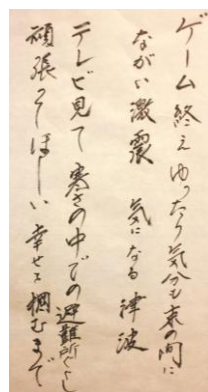 ゲーム終えゆったり気分も束の間に
ながい激震 気になる津波
テレビ見て寒さの中での避難所ぐらし
頑張ってほしい幸せ掴むまで